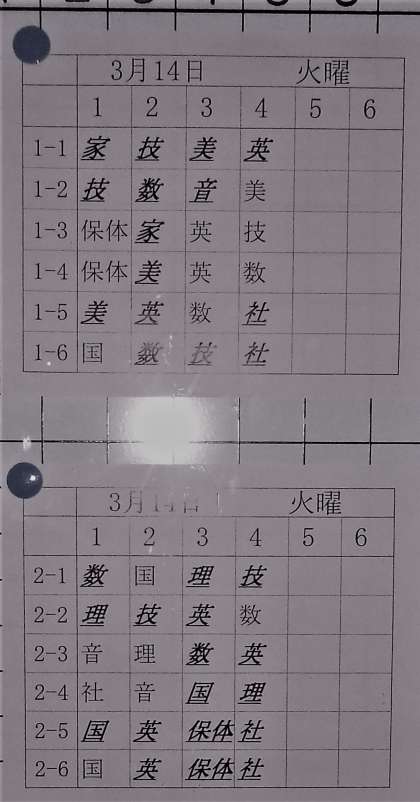 3月14日 火曜
1 2 3 4 5 6
1-1 家 技 美 英
1-2 技 数 音 美
1-3 保体 家 英 技
1-4 保体 美 英 数
1-5 美 英 数 社
1-6 国 数 技 社
3月14日 火曜
1 2 3 4 5 6
2-1 数 国 理 技
2-2 理 技 英 数
2-3 音 理 数 英
2-4 社 音 国 理
2-5 国 英 保体 社
2-6 国 英 保体 社